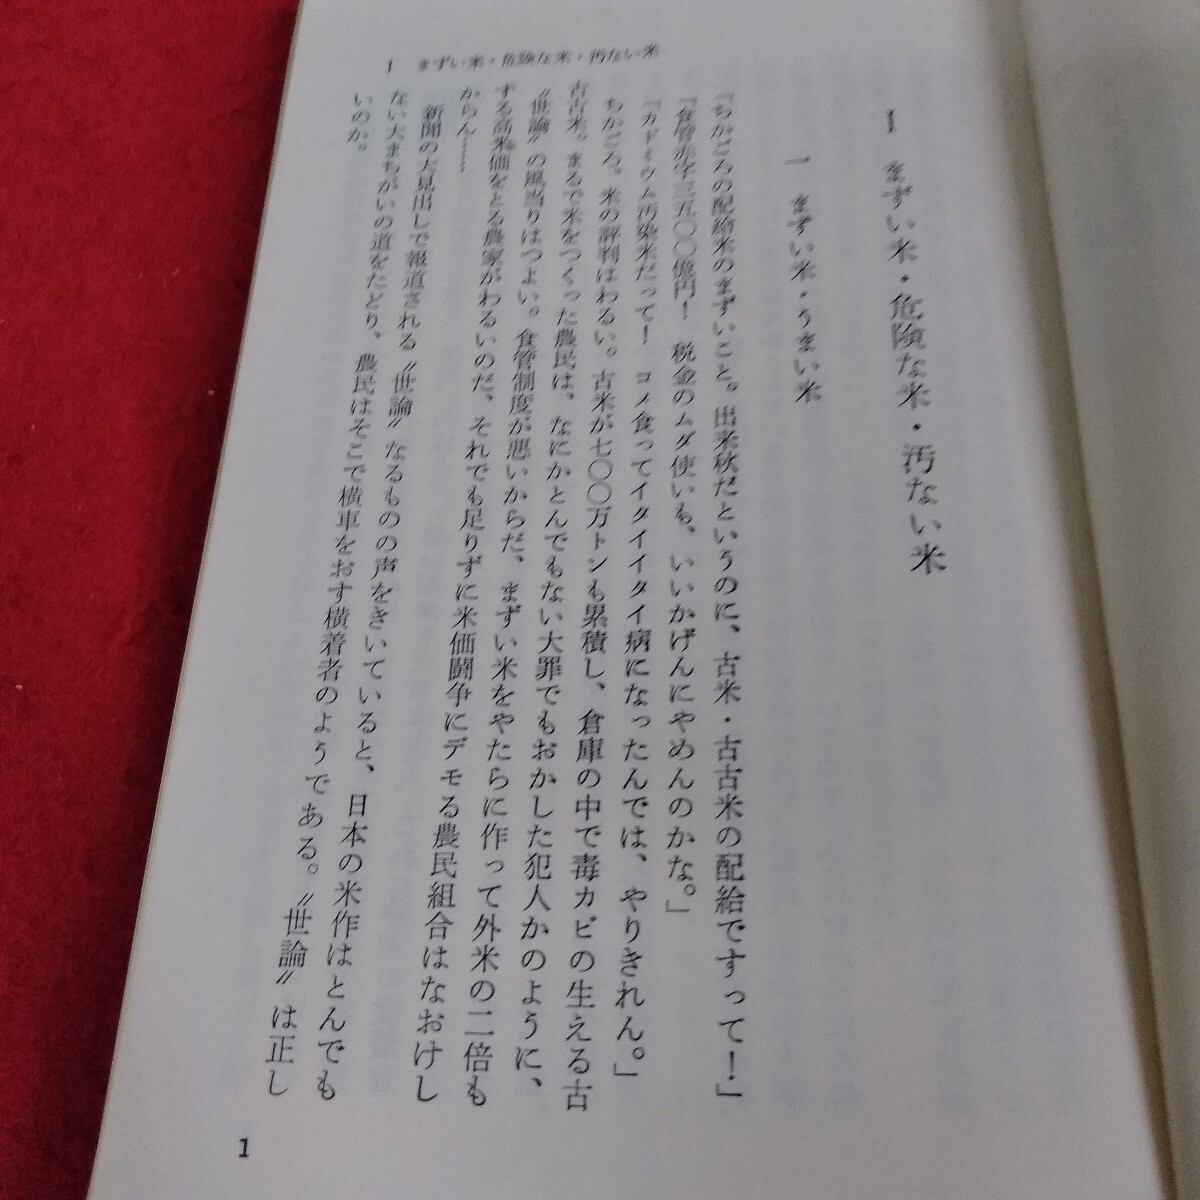 1　まずい米・危険な米・汚ない米
1　まずい米・危険な米・汚ない米
一　まずい米・うまい米
『ちかごろの配給米のまずいこと。出来秋だというのに、古米・古古米の配給ですって！」
『食管赤字三五〇〇億円！　税金のムダ使いも、いいかげんにやめんのかな。」
『カドミウム汚染米だって！　コメ食ってイタイイタイ病になったんでは、やりきれん。」
ちかごろ、米の評判はわるい。古米が七〇〇万トンも累積し、倉庫の中で毒カビの生える古
古古米。まるで米をつくった農民は、なにかとんでもない大罪でもおかした犯人かのように、
〝世論〟の風当りはつよい。食管制度が悪いからだ、まずい米をやたらに作って外米の二倍も
する高米価をとる農家がわるいのだ、それでも足りずに米価闘争にデモる農民組合はなおけし
からん……
新聞の大見出しで報道される〝世論〟なるものの声をきいていると、日本の米作はとんでも
ない大まちがいの道をたどり、農民はそこで横車をおす横着者のようである。〝世論〟は正し
いのか。
1